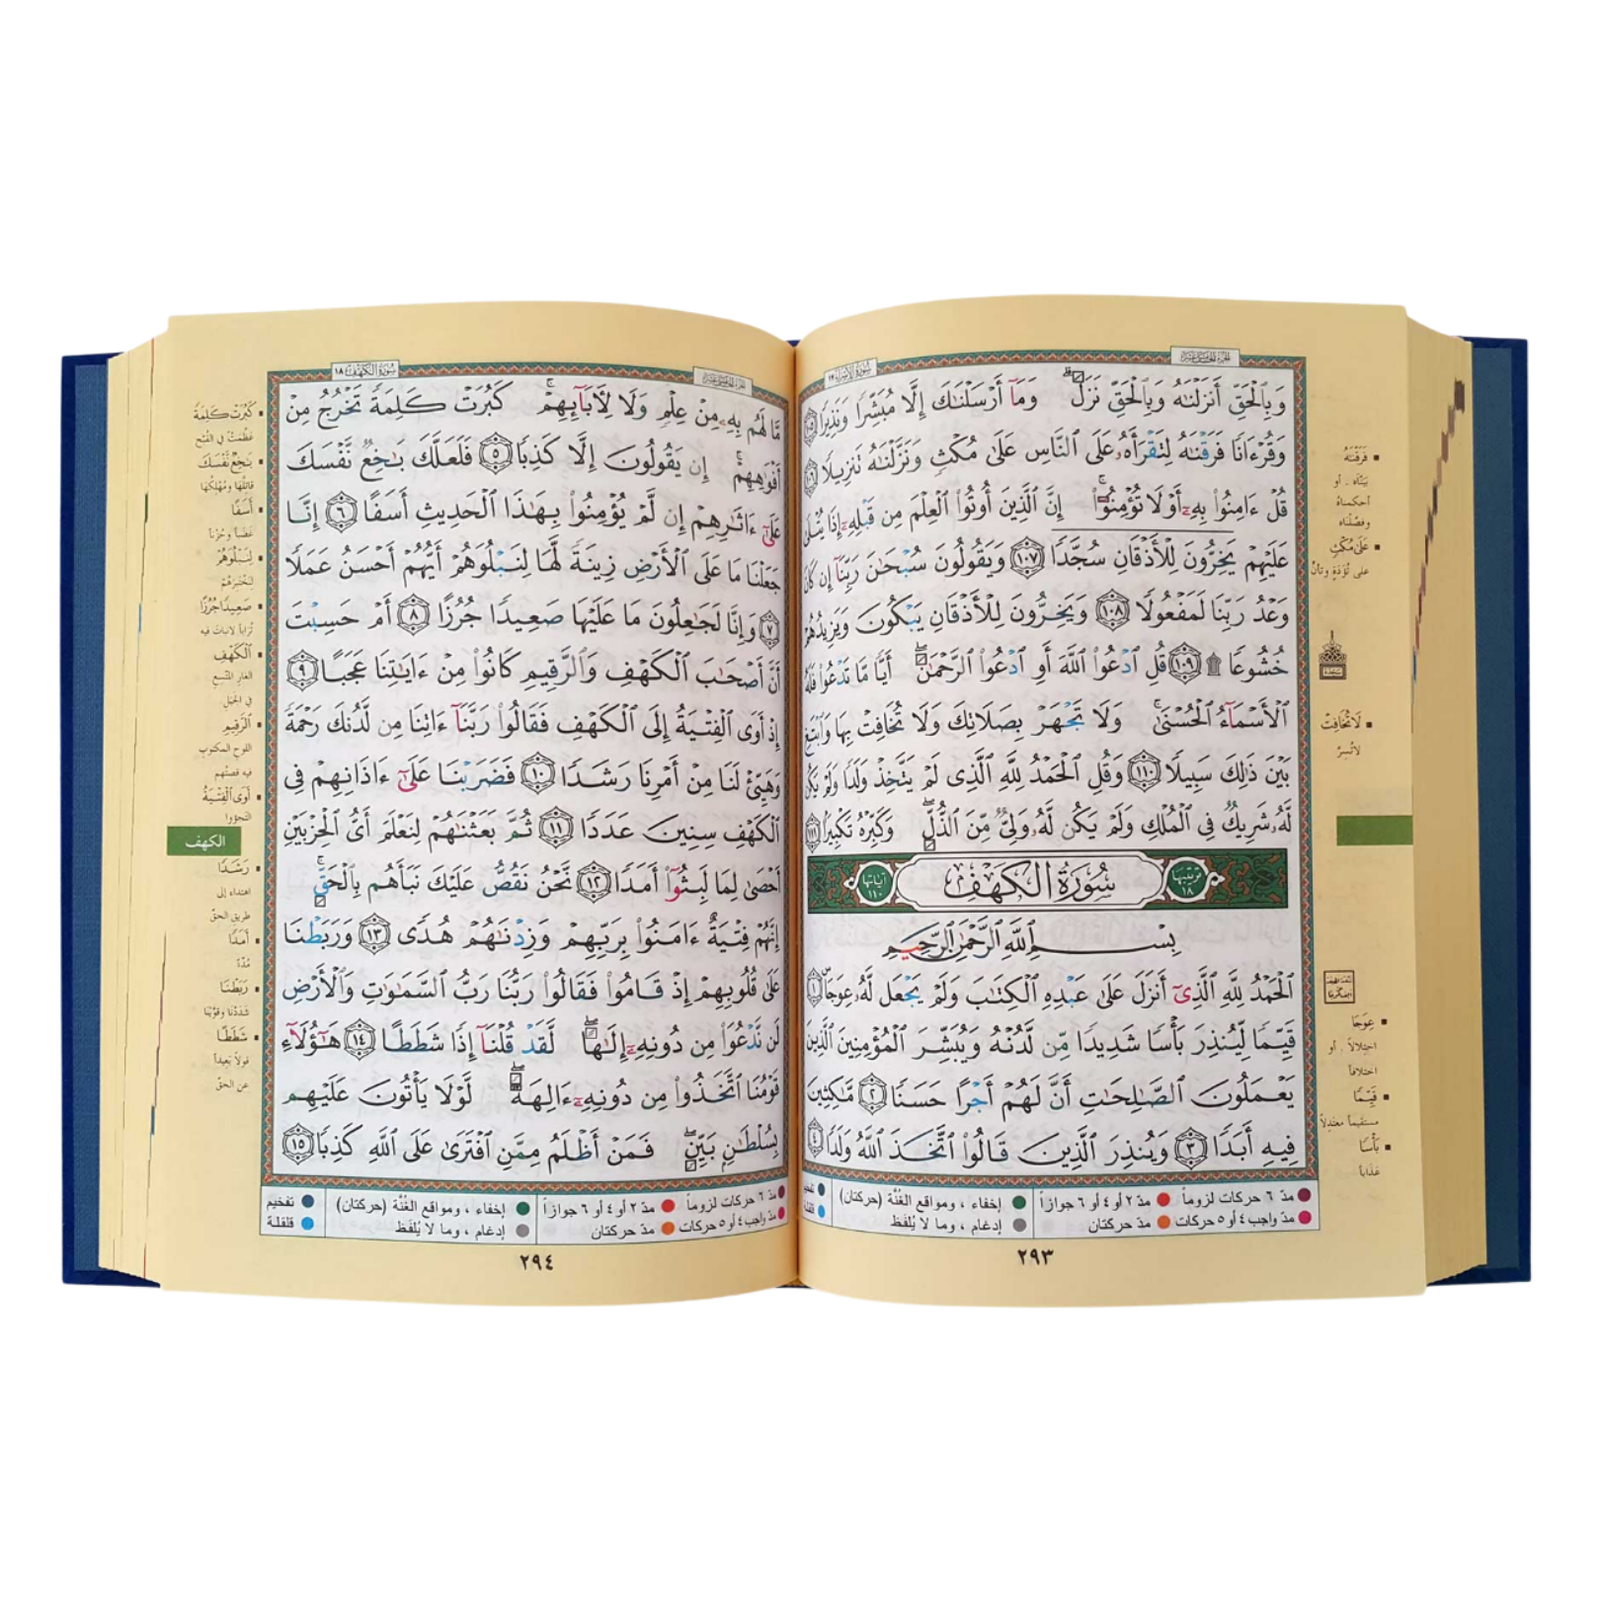 سُورَةُ الإِسْرَاء ١٧
وَبِٱلْحَقِّ أَنزَلْنَٰهُ وَبِٱلْحَقِّ نَزَلَ ۗ وَمَآ أَرْسَلْنَٰكَ إِلَّا مُبَشِّرًا وَنَذِيرًا ١٠٥
وَقُرْءَانًا فَرَقْنَٰهُ لِتَقْرَأَهُۥ عَلَى ٱلنَّاسِ عَلَىٰ مُكْثٍ وَنَزَّلْنَٰهُ تَنزِيلًا ١٠٦
قُلْ ءَامِنُوا۟ بِهِۦٓ أَوْ لَا تُؤْمِنُوٓا۟ ۚ إِنَّ ٱلَّذِينَ أُوتُوا۟ ٱلْعِلْمَ مِن قَبْلِهِۦٓ إِذَا يُتْلَىٰ
عَلَيْهِمْ يَخِرُّونَ لِلْأَذْقَانِ سُجَّدًا ١٠٧ وَيَقُولُونَ سُبْحَٰنَ رَبِّنَآ إِن كَانَ
وَعْدُ رَبِّنَا لَمَفْعُولًا ١٠٨ وَيَخِرُّونَ لِلْأَذْقَانِ يَبْكُونَ وَيَزِيدُهُمْ
خُشُوعًا ۩ ١٠٩ قُلِ ٱدْعُوا۟ ٱللَّهَ أَوِ ٱدْعُوا۟ ٱلرَّحْمَٰنَ ۖ أَيًّا مَّا تَدْعُوا۟ فَلَهُ
ٱلْأَسْمَآءُ ٱلْحُسْنَىٰ ۚ وَلَا تَجْهَرْ بِصَلَاتِكَ وَلَا تُخَافِتْ بِهَا وَٱبْتَغِ
بَيْنَ ذَٰلِكَ سَبِيلًا ١١٠ وَقُلِ ٱلْحَمْدُ لِلَّهِ ٱلَّذِى لَمْ يَتَّخِذْ وَلَدًا وَلَمْ يَكُن
لَّهُۥ شَرِيكٌ فِى ٱلْمُلْكِ وَلَمْ يَكُن لَّهُۥ وَلِىٌّ مِّنَ ٱلذُّلِّ ۖ وَكَبِّرْهُ تَكْبِيرًا ١١١
ترتيبها ١٨ سُورَةُ الكَهْفِ آياتها ١١٠
بِسْمِ ٱللَّهِ ٱلرَّحْمَٰنِ ٱلرَّحِيمِ
ٱلْحَمْدُ لِلَّهِ ٱلَّذِىٓ أَنزَلَ عَلَىٰ عَبْدِهِ ٱلْكِتَٰبَ وَلَمْ يَجْعَل لَّهُۥ عِوَجَاۜ ١
قَيِّمًا لِّيُنذِرَ بَأْسًا شَدِيدًا مِّن لَّدُنْهُ وَيُبَشِّرَ ٱلْمُؤْمِنِينَ ٱلَّذِينَ
يَعْمَلُونَ ٱلصَّٰلِحَٰتِ أَنَّ لَهُمْ أَجْرًا حَسَنًا ٢ مَّٰكِثِينَ
فِيهِ أَبَدًا ٣ وَيُنذِرَ ٱلَّذِينَ قَالُوا۟ ٱتَّخَذَ ٱللَّهُ وَلَدًا ٤
فَرَقْنَٰهُ
بَيّنّاه . أو
أحكمناه
وفصّلناه
عَلَىٰ مُكْثٍ
على تُؤَدَةٍ وتأنٍّ
لَا تُخَافِتْ
لا تُسِرَّ
عِوَجَا
اختلالاً . أو
اختلافاً
قَيِّمًا
مستقيماً معتدلاً
بَأْسًا
عَذاباً
مدّ ٦ حركات لزوماً مدّ ٢ أو ٤ أو ٦ جوازاً إخفاء ، ومواقع الغُنَّة (حركتان) تفخيم
مدّ واجب ٤ أو ٥ حركات مدّ حركتان إدغام ، وما لا يُلفَظ قلقلة
٢٩٣
سُورَةُ الكَهْفِ ١٨
مَّا لَهُم بِهِۦ مِنْ عِلْمٍ وَلَا لِءَابَآئِهِمْ ۚ كَبُرَتْ كَلِمَةً تَخْرُجُ مِنْ
أَفْوَٰهِهِمْ ۚ إِن يَقُولُونَ إِلَّا كَذِبًا ٥ فَلَعَلَّكَ بَٰخِعٌ نَّفْسَكَ
عَلَىٰٓ ءَاثَٰرِهِمْ إِن لَّمْ يُؤْمِنُوا۟ بِهَٰذَا ٱلْحَدِيثِ أَسَفًا ٦ إِنَّا
جَعَلْنَا مَا عَلَى ٱلْأَرْضِ زِينَةً لَّهَا لِنَبْلُوَهُمْ أَيُّهُمْ أَحْسَنُ عَمَلًا
٧ وَإِنَّا لَجَٰعِلُونَ مَا عَلَيْهَا صَعِيدًا جُرُزًا ٨ أَمْ حَسِبْتَ
أَنَّ أَصْحَٰبَ ٱلْكَهْفِ وَٱلرَّقِيمِ كَانُوا۟ مِنْ ءَايَٰتِنَا عَجَبًا ٩
إِذْ أَوَى ٱلْفِتْيَةُ إِلَى ٱلْكَهْفِ فَقَالُوا۟ رَبَّنَآ ءَاتِنَا مِن لَّدُنكَ رَحْمَةً
وَهَيِّئْ لَنَا مِنْ أَمْرِنَا رَشَدًا ١٠ فَضَرَبْنَا عَلَىٰٓ ءَاذَانِهِمْ فِى
ٱلْكَهْفِ سِنِينَ عَدَدًا ١١ ثُمَّ بَعَثْنَٰهُمْ لِنَعْلَمَ أَىُّ ٱلْحِزْبَيْنِ
أَحْصَىٰ لِمَا لَبِثُوٓا۟ أَمَدًا ١٢ نَّحْنُ نَقُصُّ عَلَيْكَ نَبَأَهُم بِٱلْحَقِّ ۚ
إِنَّهُمْ فِتْيَةٌ ءَامَنُوا۟ بِرَبِّهِمْ وَزِدْنَٰهُمْ هُدًى ١٣ وَرَبَطْنَا
عَلَىٰ قُلُوبِهِمْ إِذْ قَامُوا۟ فَقَالُوا۟ رَبُّنَا رَبُّ ٱلسَّمَٰوَٰتِ وَٱلْأَرْضِ
لَن نَّدْعُوَا۟ مِن دُونِهِۦٓ إِلَٰهًا ۖ لَّقَدْ قُلْنَآ إِذًا شَطَطًا ١٤ هَٰٓؤُلَآءِ
قَوْمُنَا ٱتَّخَذُوا۟ مِن دُونِهِۦٓ ءَالِهَةً ۖ لَّوْلَا يَأْتُونَ عَلَيْهِم
بِسُلْطَٰنٍۭ بَيِّنٍ ۖ فَمَنْ أَظْلَمُ مِمَّنِ ٱفْتَرَىٰ عَلَى ٱللَّهِ كَذِبًا ١٥
كَبُرَتْ كَلِمَةً
عَظُمَتْ في القُبْح
بَٰخِعٌ نَّفْسَكَ
قاتلُها ومُهْلِكُها
أَسَفًا
غضباً وحُزناً
لِنَبْلُوَهُمْ
لِنَختبِرَهُمْ
صَعِيدًا جُرُزًا
تُراباً لا نباتَ فيه
ٱلْكَهْفِ
الغار المُتَّسِع
في الجَبَل
ٱلرَّقِيمِ
اللوح المكتوب
فيه قصّتهم
أَوَى ٱلْفِتْيَةُ
التجؤوا
الكهف
رَشَدًا
اهتداء إلى
طريق الحقّ
أَمَدًا
مُدّة
رَبَطْنَا
شدَدْنا وقوّينا
شَطَطًا
قولاً بَعيداً
عن الحقّ
مدّ ٦ حركات لزوماً مدّ ٢ أو ٤ أو ٦ جوازاً إخفاء ، ومواقع الغُنَّة (حركتان) تفخيم
مدّ واجب ٤ أو ٥ حركات مدّ حركتان إدغام ، وما لا يُلفَظ قلقلة
٢٩٤